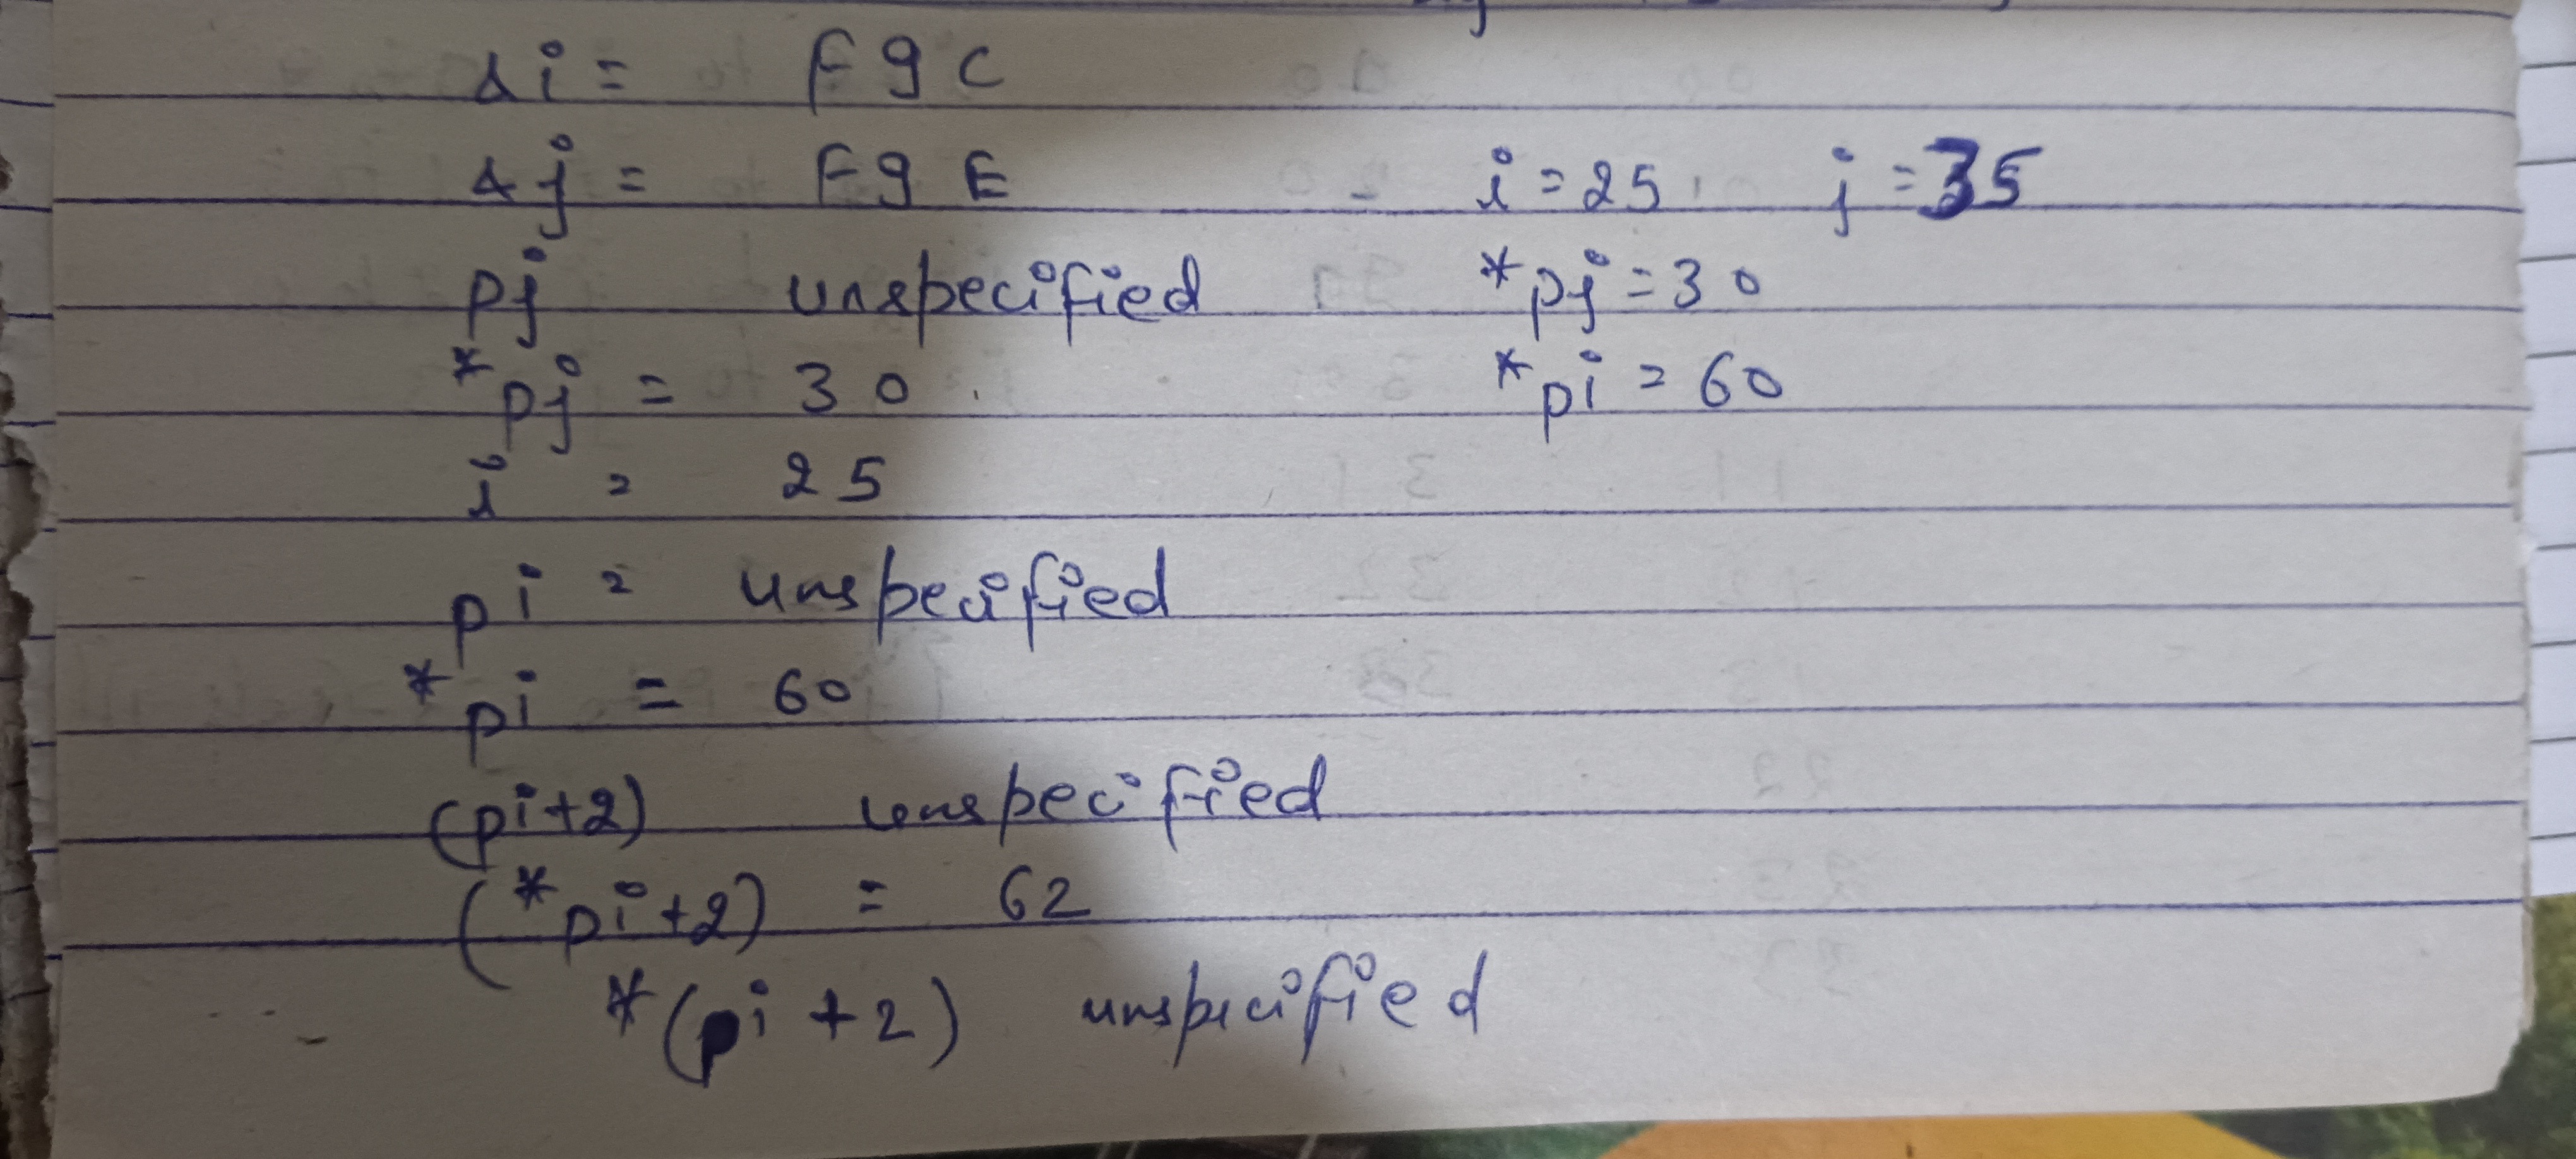 &i = F9C
&j = F9E
i = 25, j = 35
pj unspecified
*pj = 30
*pj = 30
*pi = 60
i = 25
pi = unspecified
*pi = 60
(pi+2) unspecified
(*pi+2) = 62
*(pi+2) unspecified